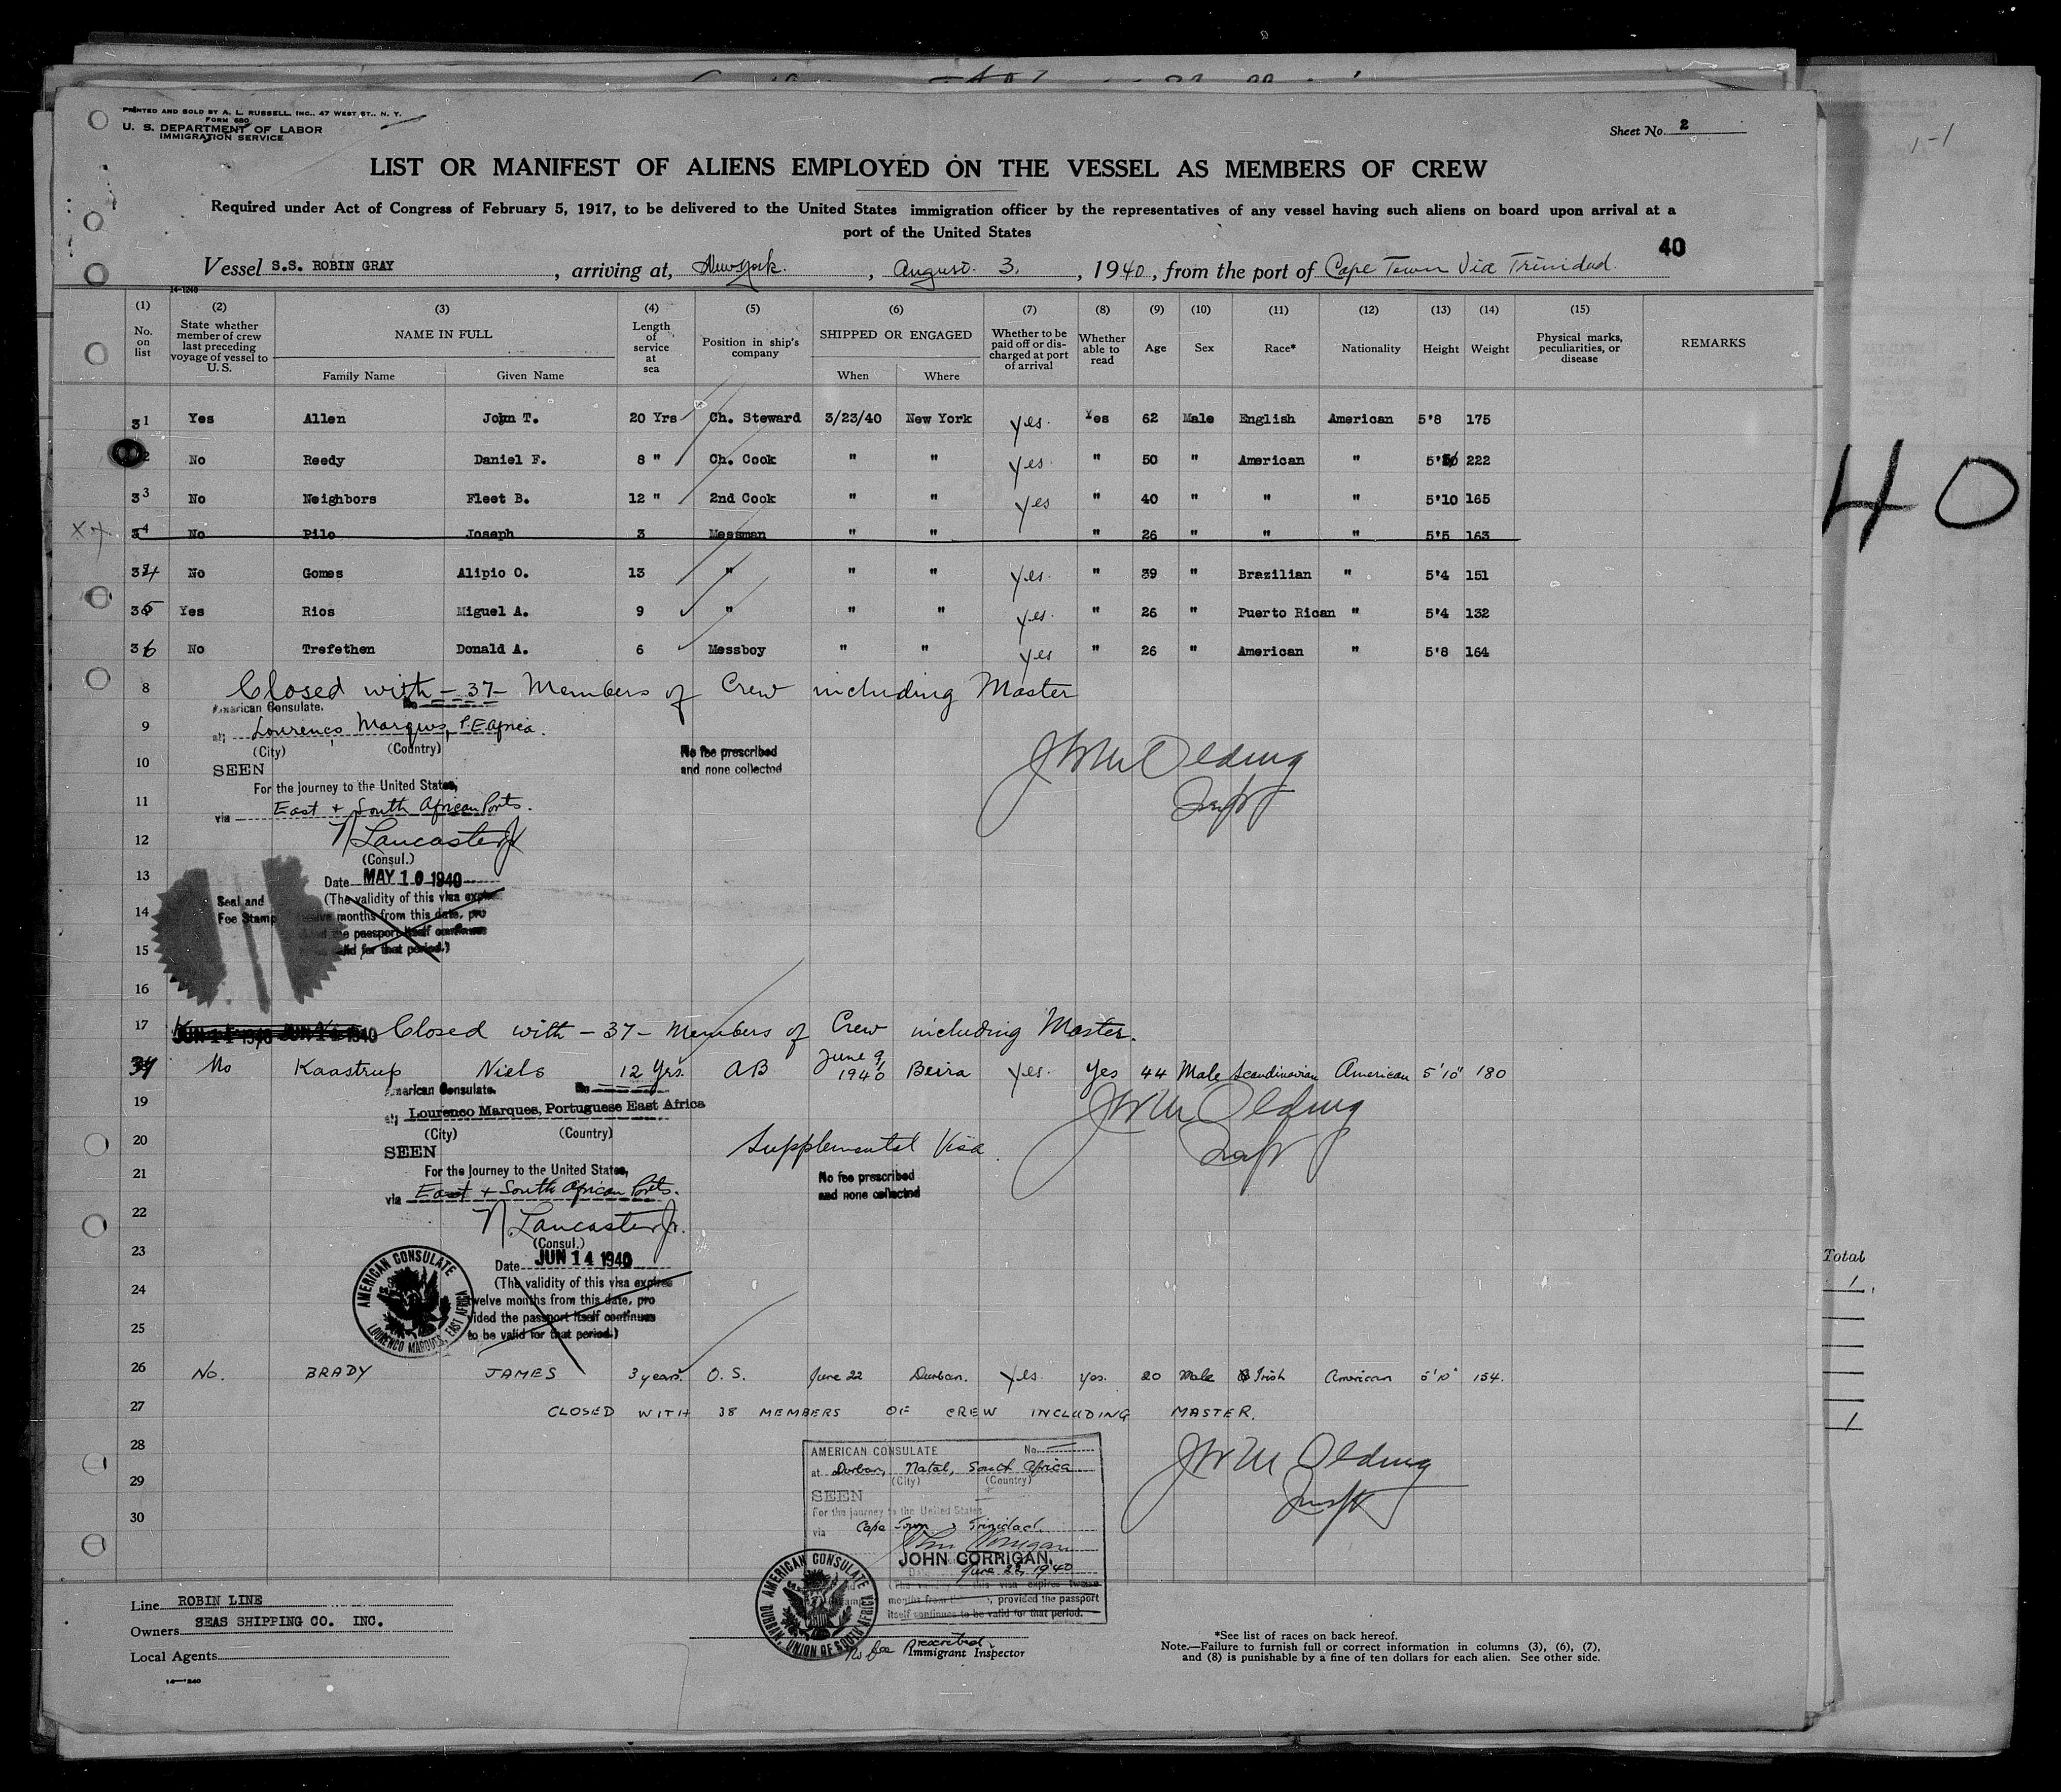 PRINTED AND SOLD BY A. L. RUSSELL, INC., 47 WEST ST., N. Y.
FORM 680
U. S. DEPARTMENT OF LABOR
IMMIGRATION SERVICE
Sheet No. 2
1-1
LIST OR MANIFEST OF ALIENS EMPLOYED ON THE VESSEL AS MEMBERS OF CREW
Required under Act of Congress of February 5, 1917, to be delivered to the United States immigration officer by the representatives of any vessel having such aliens on board upon arrival at a
port of the United States
40
Vessel S.S. ROBIN GRAY, arriving at, New York, August 3, 1940, from the port of Cape Town Via Trinidad.
14-1240
(1) (2) (3) (4) (5) (6) (7) (8) (9) (10) (11) (12) (13) (14) (15)
No. on list State whether member of crew last preceding voyage of vessel to U. S. NAME IN FULL Length of service at sea Position in ship's company SHIPPED OR ENGAGED Whether to be paid off or discharged at port of arrival Whether able to read Age Sex Race* Nationality Height Weight Physical marks, peculiarities, or disease REMARKS
Family Name Given Name When Where
31 Yes Allen John T. 20 Yrs Ch. Steward 3/23/40 New York yes. Yes 62 Male English American 5'8 175
2 No Reedy Daniel F. 8 " Ch. Cook " " yes. " 50 " American " 5'10 222
33 No Neighbors Fleet B. 12 " 2nd Cook " " yes " 40 " " " 5'10 165
X 34 No Pilo Joseph 3 Messman " " " 26 " " " 5'5 163
34 No Gomes Alipio O. 13 " " " yes. " 39 " Brazilian " 5'4 151
35 Yes Rios Miguel A. 9 " " " yes. " 26 " Puerto Rican " 5'4 132
36 No Trefethen Donald A. 6 Messboy " " yes " 26 " American " 5'8 164
40
8 Closed with - 37 - Members of Crew including Master
American Consulate. No
9 at; Lourenco Marques, P.E. Africa.
(City) (Country)
No fee prescribed
and none collected
10 SEEN
JWM Olding
For the journey to the United States,
11 via East + South African Ports.
12 N Lancaster Jr
(Consul.)
13 Date MAY 10 1940
Seal and
Fee Stamp
(The validity of this visa expires
14 twelve months from this date, pro
the passport itself continues
15 valid for that period.)
16
17 JUN 14 1940 JUN 14 1940 Closed with - 37 - Members of Crew including Master.
37 No Kaastrup Niels 12 Yrs. AB June 9, 1940 Beira yes. Yes 44 Male Scandinavian American 5'10" 180
American Consulate. No
19 at; Lourenco Marques, Portuguese East Africa
JWM Olding
(City) (Country)
20 SEEN Supplemental Visa
21 For the journey to the United States,
No fee prescribed
and none collected
via East + South African Ports.
22 N Lancaster Jr.
(Consul.)
23 Date JUN 14 1940
AMERICAN CONSULATE
LOURENCO MARQUES, EAST AFRICA
(The validity of this visa expires
24 twelve months from this date, pro
vided the passport itself continues
25 to be valid for that period.)
Total
1
26 No. BRADY JAMES 3 years. O.S. June 22 Durban. yes. yes. 20 Male Irish American 5'10" 154.
27 CLOSED WITH 38 MEMBERS OF CREW INCLUDING MASTER.
1
28
AMERICAN CONSULATE No.
JWM Olding
at Durban, Natal, South Africa
29 (City) (Country)
SEEN
For the journey to the United States
30 via Cape Town, Trinidad.
John Corrigan
JOHN CORRIGAN,
Date June 22, 1940
(The validity of this visa expires twelve
months from this, provided the passport
itself continues to be valid for that period.
AMERICAN CONSULATE
DURBAN, UNION OF SOUTH AFRICA
No fee prescribed.
Immigrant Inspector
Line ROBIN LINE
Owners SEAS SHIPPING CO. INC.
Local Agents
14-1240
*See list of races on back hereof.
Note.—Failure to furnish full or correct information in columns (3), (6), (7),
and (8) is punishable by a fine of ten dollars for each alien. See other side.